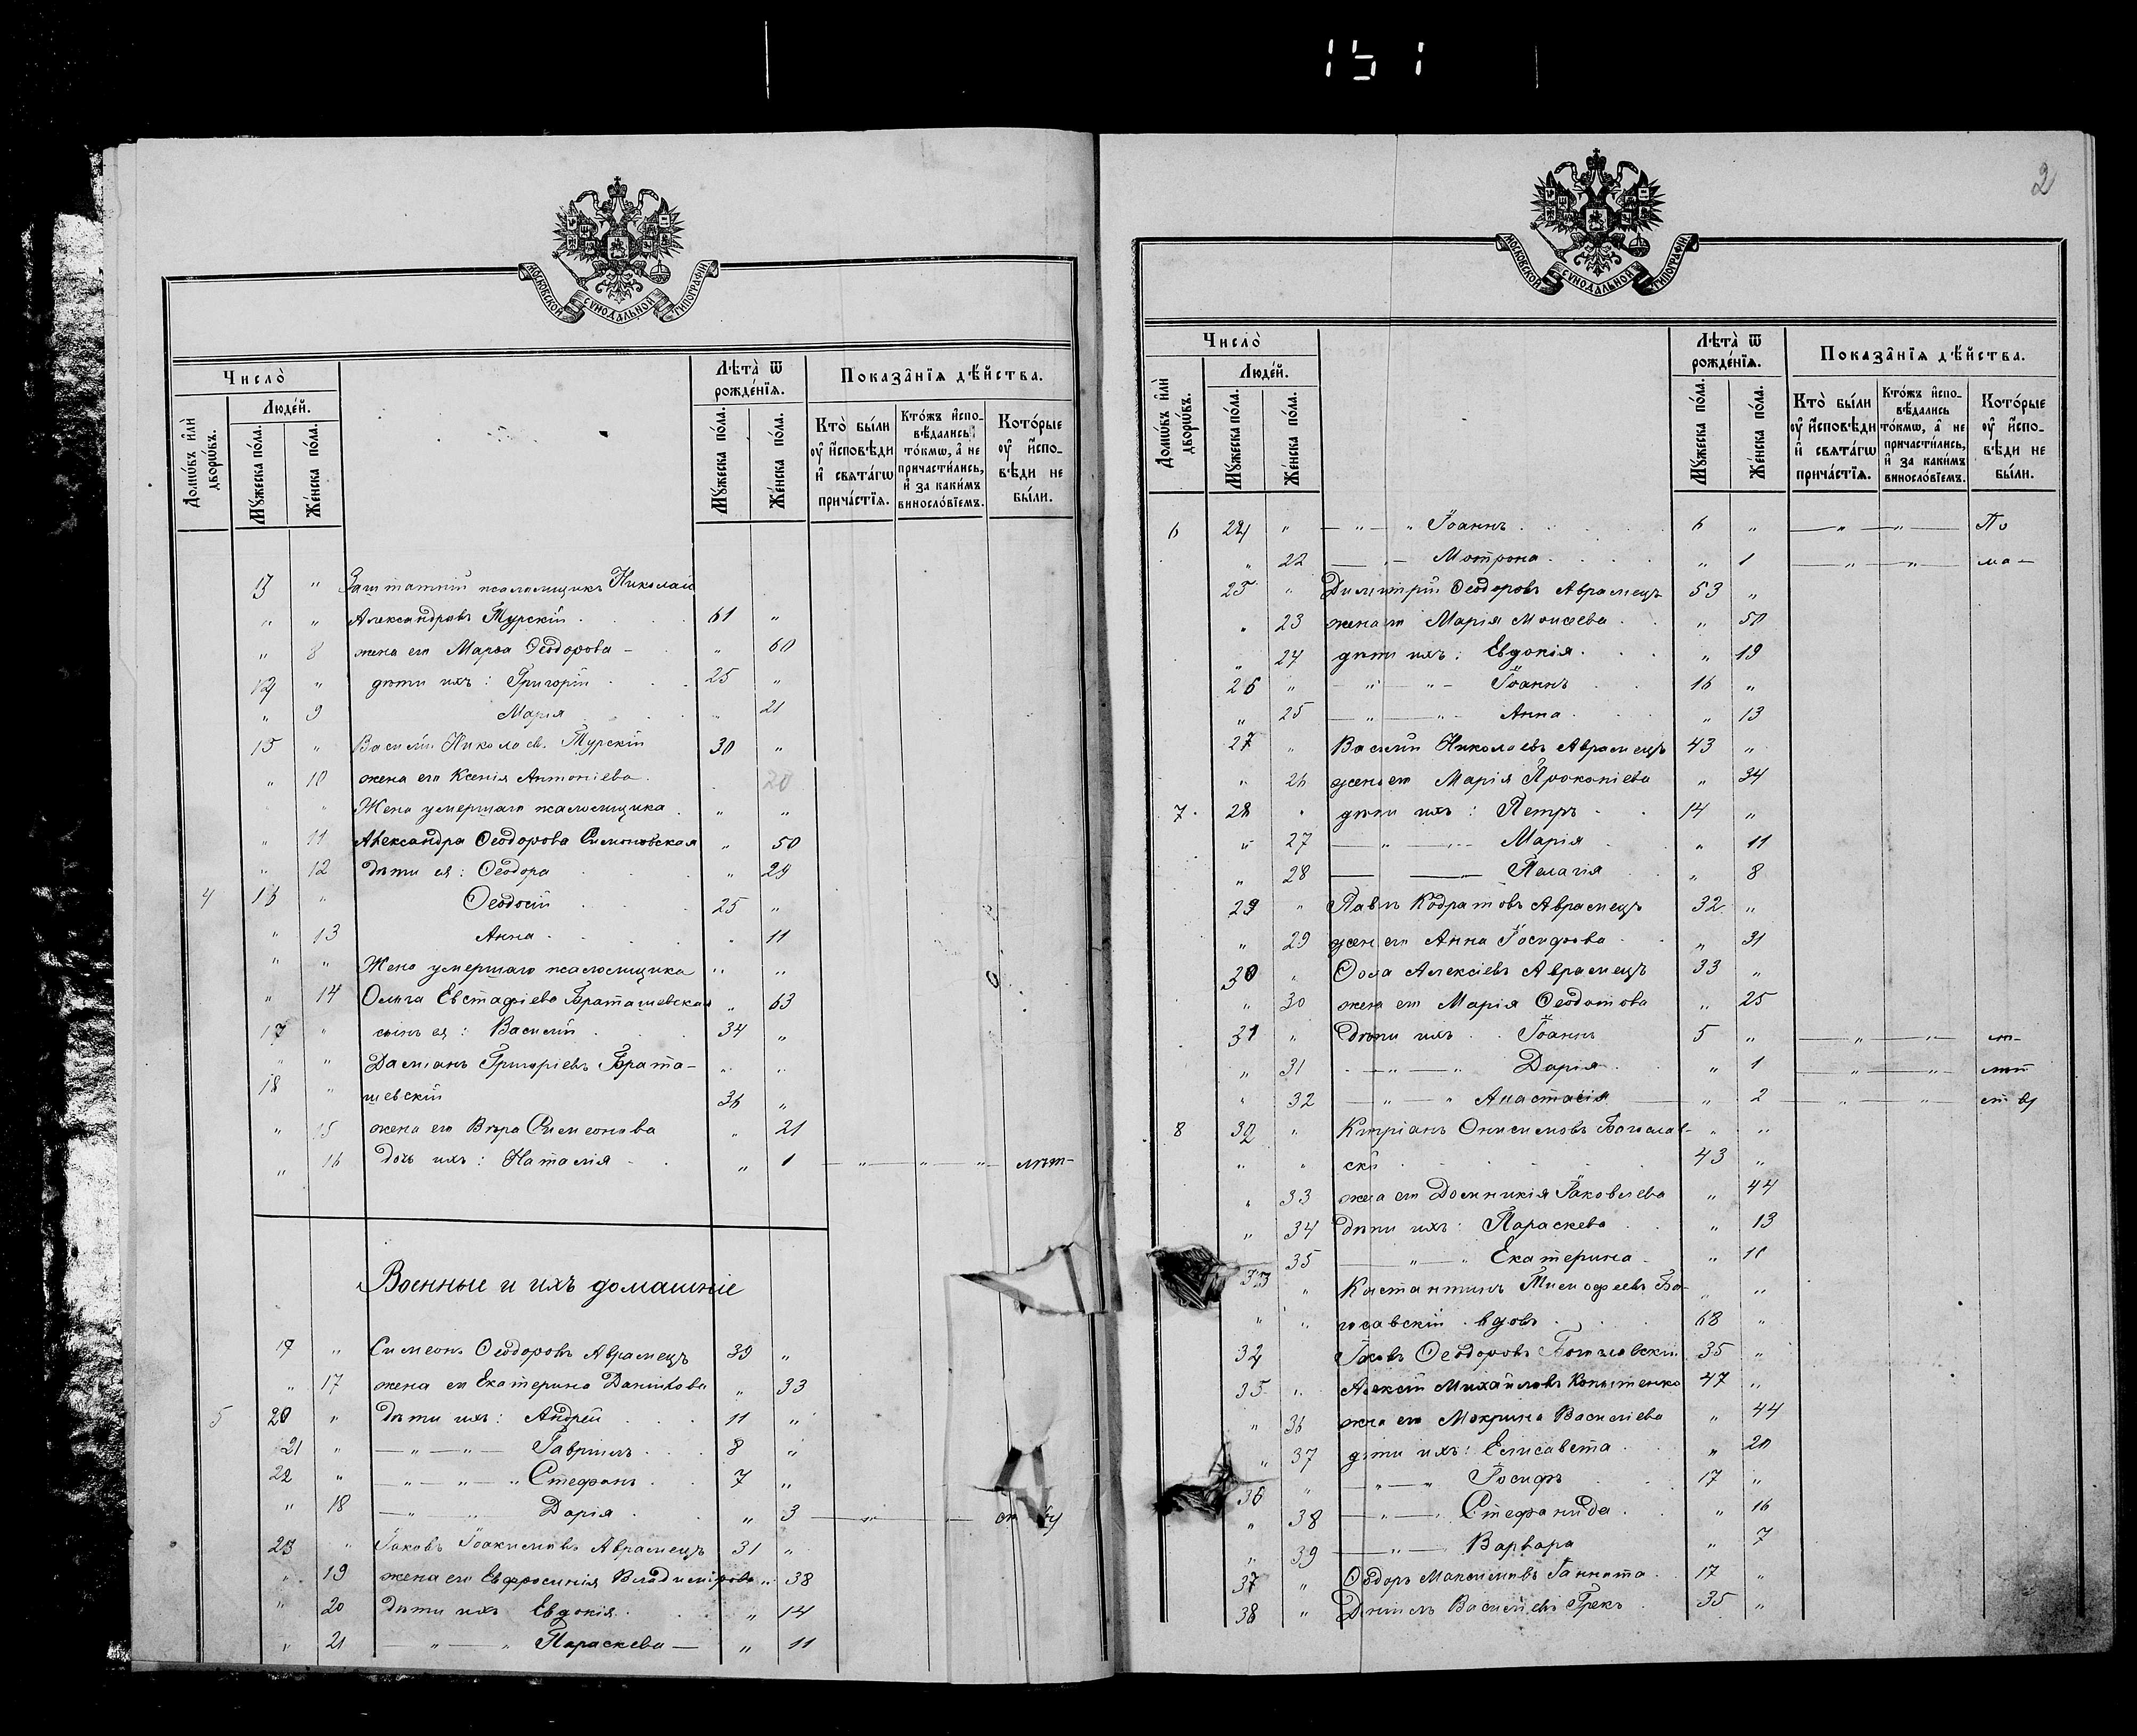 151
МОСКОВСКОЙ СѴНОДАЛЬНОЙ ТИПОГРАФІИ
Число̀
Людéй.
Домѡ́въ и҆лѝ двори́въ.
Мꙋ́жеска по́ла.
Жéнска по́ла.
Лѣта̀ ѿ рождéнїѧ.
Мꙋ́жеска по́ла.
Жéнска по́ла.
Показа̑нїѧ дѣ́йства.
Кто̀ бы́ли ᲂу҆ и҆сповѣ́ди и҆ свѧта́гѡ прича́стїѧ.
Кто́жъ и҆спо-вѣ́дались то́кмѡ, а҆ не причасти́лись, и҆ за каки́мъ винослóвїемъ.
Кото́рые ᲂу҆ и҆спо-вѣ́ди не бы́ли.
13 " Заштатній псаломщикъ Николай
" " Александровъ Турскій 61 "
" 8 жена его Марѳа Ѳеодорова " 60
14 " дѣти ихъ: Григорій 25 "
" 9 Марія " 21
15 " Василій Николаев. Турскій 30 "
" 10 жена его Ксенія Антоніева 20
" Жена умершаго псаломщика " "
" 11 Александра Ѳеодорова Симоновская " 50
" 12 дѣти ея: Ѳеодора " 29
4 16 " Ѳеодосій 25 "
" 13 Анна " 11
" " Жена умершаго псаломщика " "
" 14 Ольга Евстафіева Браташевская " 63
17 " сынъ ея: Василій 34 "
" " Даміанъ Григоріевъ Брата- " "
18 " шевскій 36 "
" 15 жена его Вѣра Симеонова " 21
" 16 дочь ихъ: Наталія " 1 — " — " — " —
Военные и ихъ домашніе
19 " Симеонъ Ѳеодоровъ Аврамецъ 39 "
" 17 жена его Екатерина Даніилова " 33
5 20 " дѣти ихъ: Андрей 11 "
21 " — " — " — Гавріилъ 8 "
22 " — " — " — " Стефанъ 7 "
" 18 — " — Дарія " 3
23 " Іаковъ Іоакимовъ Аврамецъ 31 "
" 19 жена его Евфросинія Владимірова " 38
" 20 дѣти ихъ Евдокія " 14
" 21 — " — " Параскева — " 11
2
МОСКОВСКОЙ СѴНОДАЛЬНОЙ ТИПОГРАФІИ
Число̀
Людéй.
Домѡ́въ и҆лѝ двори́въ.
Мꙋ́жеска по́ла.
Жéнска по́ла.
Лѣта̀ ѿ рождéнїѧ.
Мꙋ́жеска по́ла.
Жéнска по́ла.
Показа̑нїѧ дѣ́йства.
Кто̀ бы́ли ᲂу҆ и҆сповѣ́ди и҆ свѧта́гѡ прича́стїѧ.
Кто́жъ и҆спо-вѣ́дались то́кмѡ, а҆ не причасти́лись, и҆ за каки́мъ винослóвїемъ.
Кото́рые ᲂу҆ и҆спо-вѣ́ди не бы́ли.
6 24 " — " — " Іоаннъ 6 " — " — " — По
" 22 — " — Мотрона " 1 — " — " — ма-
25 " Димитрій Ѳеодоровъ Аврамецъ 53 "
" 23 жена его Марія Моисеева " 50
" 24 дѣти ихъ: Евдокія " 19
26 " — " — " — Іоаннъ 16 "
" 25 — " — " — Анна " 13
27 " Василій Николаевъ Аврамецъ 43 "
" 26 жена его Марія Прокопіева " 34
7 28 " дѣти ихъ: Петръ 14 "
" 27 — " — " — Марія " 11
" 28 — " — Пелагія " 8
29 " Павлъ Кодратовъ Аврамецъ 32 "
" 29 жена его Анна Іосифова " 31
30 " Ѳома Алексіевъ Аврамецъ 33 "
" 30 жена его Марія Ѳеодотова " 25
31 " дѣти ихъ Іоаннъ 5 " — " — " —
" 31 — " — " Дарія " 1 — " — " —
" 32 — " — " Анастасія " 2 — " — " —
8 32 " Кипріанъ Онисимовъ Богослав- " "
" " скій 43 "
" 33 жена его Домникія Іаковлева " 44
" 34 дѣти ихъ: Параскева " 13
35 — " — " Екатерина " 10
33 " Констан­тинъ Тимофеевъ Бо- " "
" " гославскій вдовъ 68 "
34 Іаковъ Ѳеодоровъ Богославскій 35 "
35 " Алексій Михайловъ Копытенко 47 "
" 36 жена его Мокрина Василіева " 44
" 37 дѣти ихъ: Елисавета " 20
36 " — " — " Іосифъ 17 "
" 38 — " — " Стефанида " 16
" 39 — " — Варвара " 7
37 " Ѳеодоръ Максимовъ 17 "
38 " Даніилъ Василіевъ Грекъ 35 "